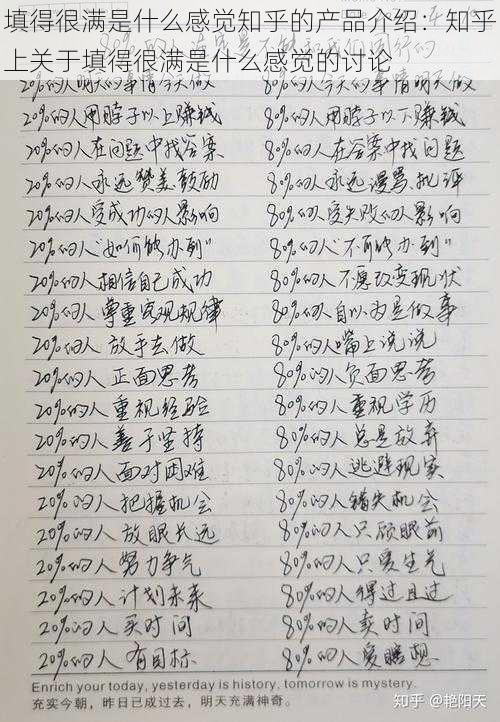 填得很满是什么感觉知乎的产品介绍：知乎
上关于填得很满是什么感觉的讨论
20%的人明天的事情今天做 80%的人今天的事情明天做
20%的人用脖子以上赚钱 80%的人用脖子以下赚钱
20%的人在问题中找答案 80%的人在答案中找问题
20%的人永远赞美鼓励 80%的人永远漫骂批评
20%的人受成功的人影响 80%的人受失败的人影响
20%的人“如何能办到” 80%的人“不可能办到”
20%的人相信自己成功 80%的人不愿改变现状
20%的人尊重客观规律 80%的人自以为是做事
20%的人放手去做 80%的人嘴上说说
20%的人正面思考 80%的人负面思考
20%的人重视经验 80%的人重视学历
20%的人善于坚持 80%的人总是放弃
20%的人面对困难 80%的人逃避现实
20%的人把握机会 80%的人错失机会
20%的人放眼长远 80%的人只顾眼前
20%的人努力争气 80%的人只爱生气
20%的人计划未来 80%的人得过且过
20%的人买时间 80%的人卖时间
20%的人有目标 80%的人爱瞎想
Enrich your today, yesterday is history, tomorrow is mystery.
充实今朝，昨日已成过去，明天充满神奇。
知乎 @艳阳天